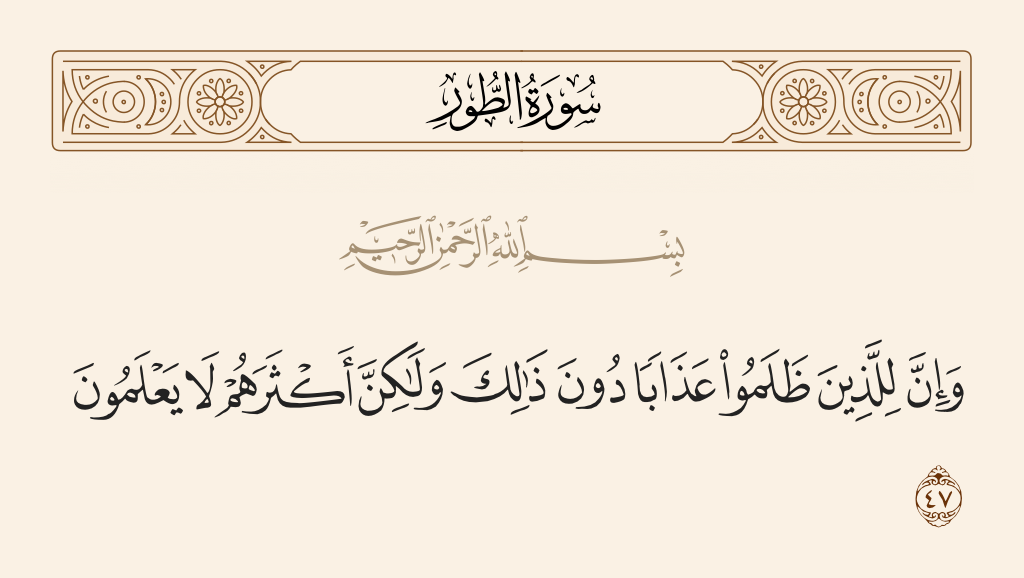 سُورَةُ الطُّورِ
بِسْمِ ٱللَّهِ ٱلرَّحْمَٰنِ ٱلرَّحِيمِ
وَإِنَّ لِلَّذِينَ ظَلَمُوا۟ عَذَابًا دُونَ ذَٰلِكَ وَلَٰكِنَّ أَكْثَرَهُمْ لَا يَعْلَمُونَ
٤٧